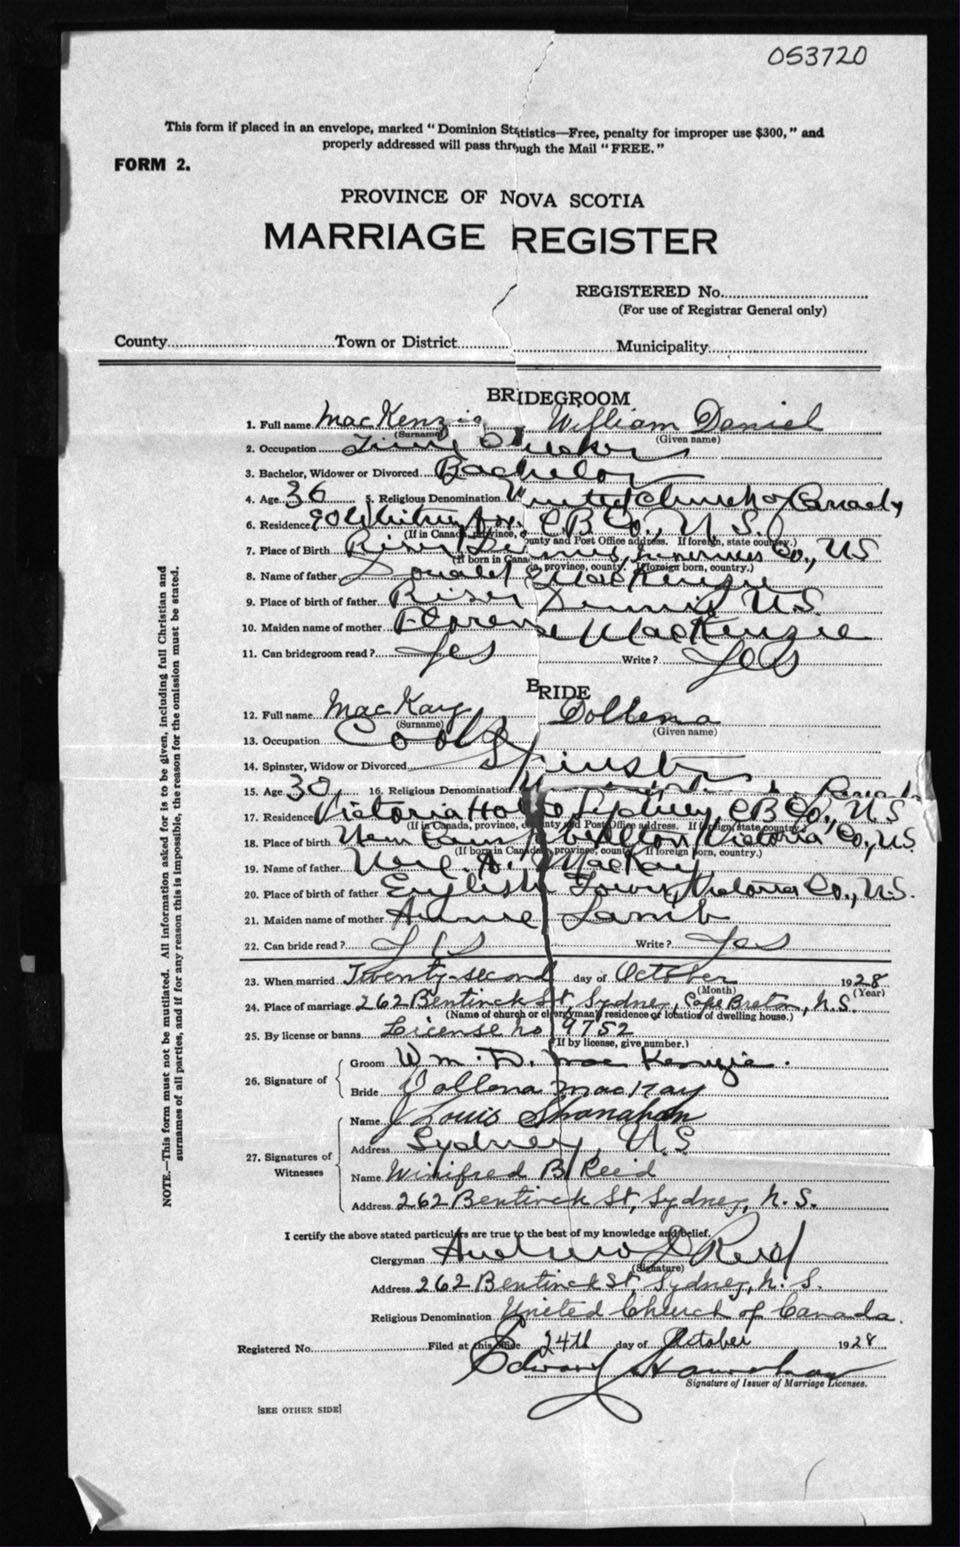 053720
This form if placed in an envelope, marked "Dominion Statistics—Free, penalty for improper use $300," and
properly addressed will pass through the Mail "FREE."
FORM 2.
PROVINCE OF NOVA SCOTIA
MARRIAGE REGISTER
REGISTERED No.
(For use of Registrar General only)
County Town or District Municipality
BRIDEGROOM
1. Full name MacKenzie William Daniel
(Surname) (Given name)
2. Occupation
3. Bachelor, Widower or Divorced Bachelor
4. Age 36 5. Religious Denomination United Church of Canada
6. Residence C B Co., N.S.
(If in Canada, province, county and Post Office address. If foreign, state country.)
7. Place of Birth River Dennis, Inverness Co., NS
(If born in Canada, province, county. If foreign born, country.)
8. Name of father Donald MacKenzie
9. Place of birth of father River Dennis N.S.
10. Maiden name of mother Florence MacKenzie
11. Can bridegroom read? Yes Write? Yes
BRIDE
12. Full name MacKay Dollena
(Surname) (Given name)
13. Occupation Cook
14. Spinster, Widow or Divorced Spinster
15. Age 30 16. Religious Denomination
17. Residence Victoria Sydney C B Co., N S
(If in Canada, province, county and Post Office address. If foreign, state country)
18. Place of birth New Victoria Co., N.S.
(If born in Canada, province, county. If foreign born, country.)
19. Name of father A. MacKay
20. Place of birth of father English Town, Victoria Co., N.S.
21. Maiden name of mother Annie Lamb
22. Can bride read? Yes Write? Yes
23. When married Twenty-second day of October 1928
(Month) (Year)
24. Place of marriage 262 Bentinck St, Sydney, Cape Breton, N.S.
(Name of church or clergyman's residence or location of dwelling house.)
25. By license or banns License no 9752
(If by license, give number.)
26. Signature of
Groom Wm. D. MacKenzie.
Bride Dollena MacKay
27. Signatures of Witnesses
Name J Louis Shanahan
Address Sydney, N.S
Name Winifred B Reid
Address 262 Bentinck St, Sydney, N.S.
I certify the above stated particulars are true to the best of my knowledge and belief.
Clergyman Andrew D Reid
(Signature)
Address 262 Bentinck St, Sydney, N.S.
Religious Denomination United Church of Canada.
Registered No. Filed at this office 24th day of October 1928
Edward
Signature of Issuer of Marriage Licenses.
[SEE OTHER SIDE]
NOTE.—This form must not be mutilated. All information asked for is to be given, including full Christian and
surnames of all parties, and if for any reason this is impossible, the reason for the omission must be stated.